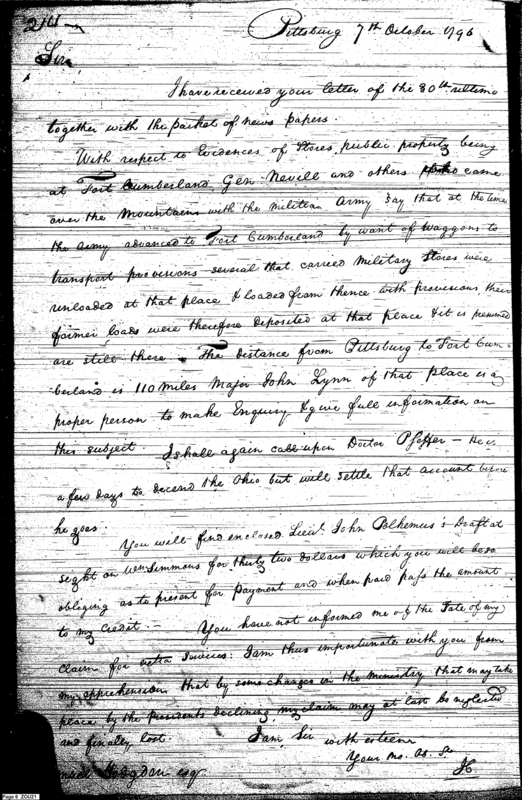 Pittsburg 7th October 1796
Sir
I have received your letter of the 30th ultimo
together with the packet of news papers.
With respect to Evidences of Stores, public property being
at Fort Cumberland, Gen Nevill and others who came
over the Mountains with the militian Army say that at the time
the army advanced to Fort Cumberland by want of waggons to
transport provisions several that carried Military Stores were
unloaded at that place & loaded from thence with provisions their
former loads were therefore deposited at that place & it is presumed
are still there. The distance from Pittsburg to Fort Cum-
berland is 110 miles Major John Lynn of that place is a
proper person to make Enquiry & give full information on
this subject. I shall again call upon Doctor Pfeffer - He is
a few days to decend the Ohio but will settle that account before
he goes.
You will find enclosed Lieut. John Polhemus's Draft at
seight on Wm Simmons for thirty two dollars which you will be so
obliging as to present for payment and when paid pass the amount
to my Credit. - You have not informed me of the Fate of my
Claim for extra Services: I am thus importunate with you from
my apprehension that by some changes in the ministry that may take
place by the Presidents declining, my claim may at last be neglected
and finally lost. I am Sir with esteem
Your mo. ob. Sr
Hodgdon esqr
Page 6 ZOU21